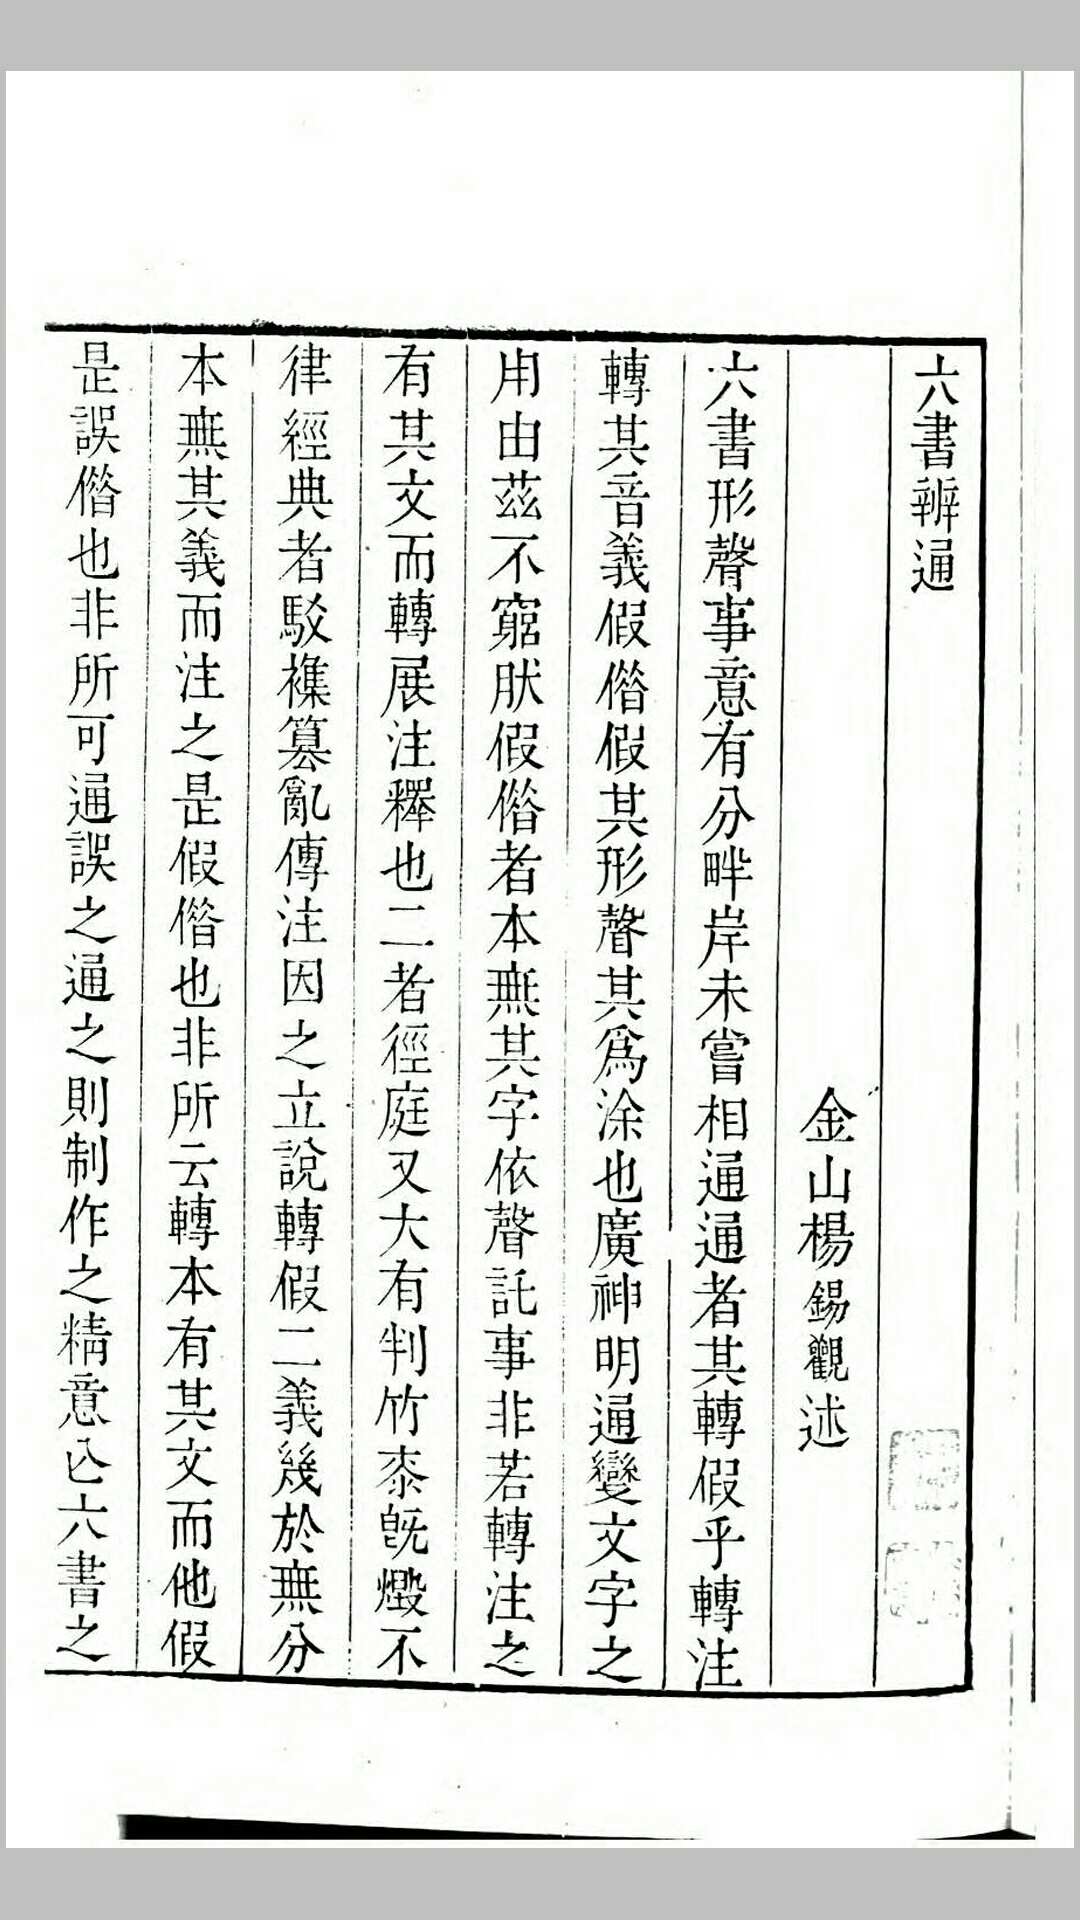 六書辨通
金山楊錫觀述
六書形聲事意有分畔岸未嘗相通通者其轉假乎轉注
轉其音義假偺假其形聲其爲涂也廣神明通變文字之
用由茲不窮肰假偺者本無其字依聲託事非若轉注之
有其文而轉展注釋也二者徑庭又大有判竹桼旣燬不
律經典者駁襍篡亂傳注因之立說轉假二義幾於無分
本無其義而注之是假偺也非所云轉本有其文而他假
是誤偺也非所可通誤之通之則制作之精意亾六書之